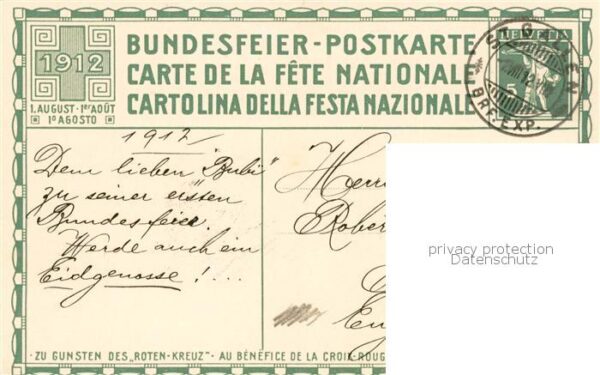 1912
1. AUGUST - 1er AOÛT
1o AGOSTO
BUNDESFEIER-POSTKARTE
CARTE DE LA FÊTE NATIONALE
CARTOLINA DELLA FESTA NAZIONALE
HELVETIA
5
BRF. EXP.
1912
Dem lieben "Bubi"
zu seiner ersten
Bundesfeier.
Werde auch ein
Eidgenosse!...
Herr
Rober
privacy protection
Datenschutz
ZU GUNSTEN DES „ROTEN-KREUZ" · AU BÉNÉFICE DE LA CROIX-ROUG